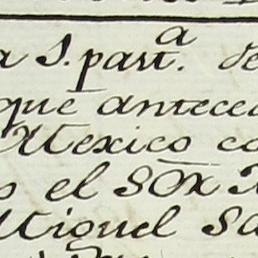 a S. part.a de
que anteced
Mexico co
s el SOR
Miguel Sa